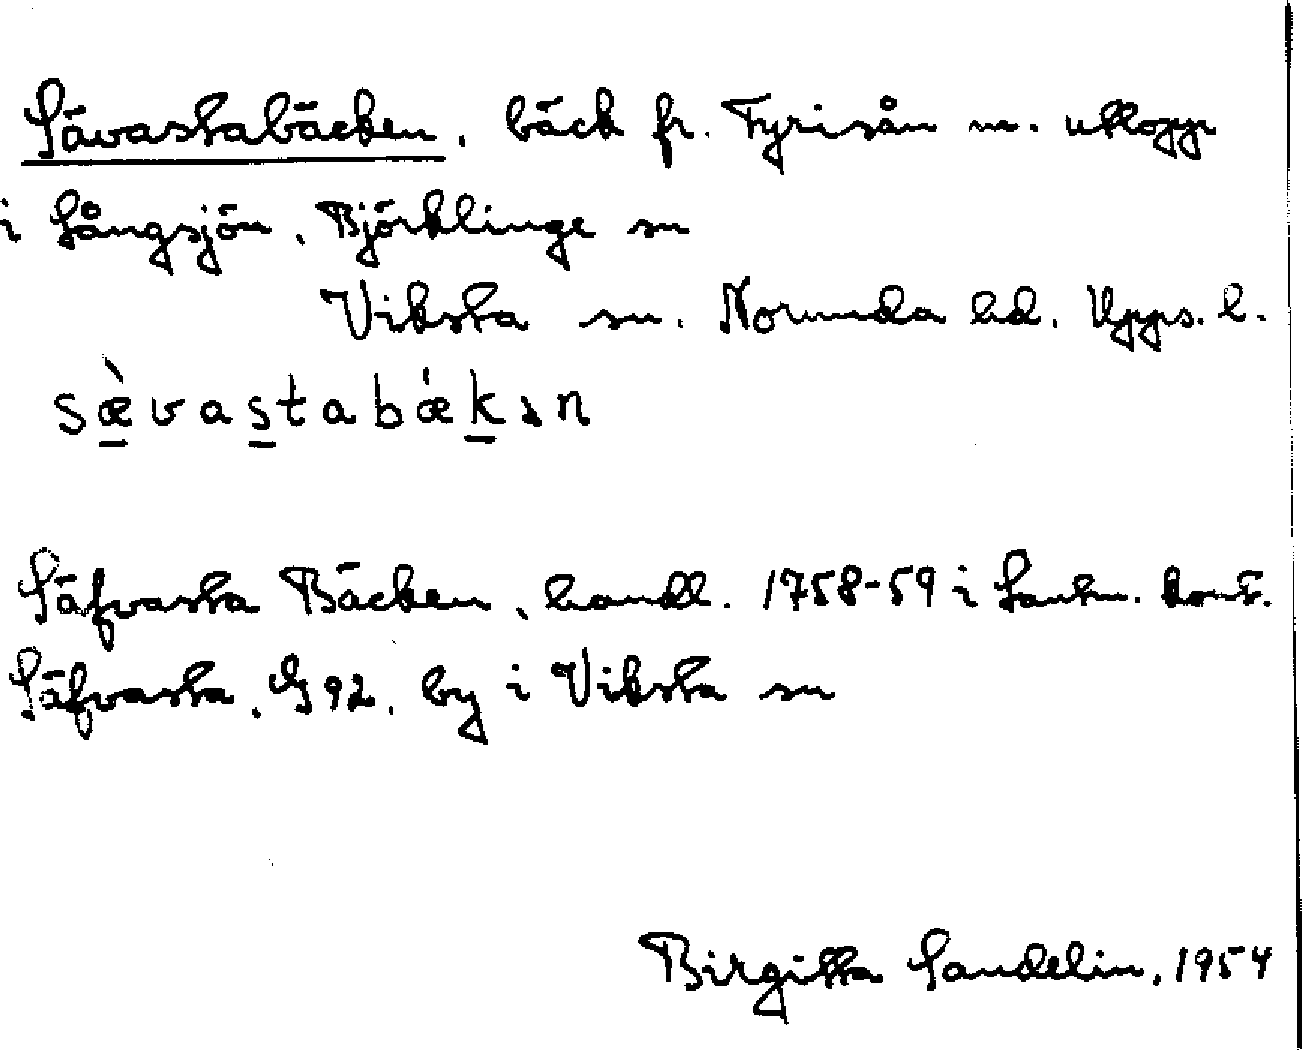 Sävastabäcken, bäck fr. Fyrisån m. utlopp
i Långsjön, Björklinge sn
Viksta sn. Norunda hd. Upps. l.
sæ̀vastabǽkən
Säfvasta Bäcken, handl. 1758-59 i Lantm. kont.
Säfvasta, G92, by i Viksta sn
Birgitta Sandelin, 1954